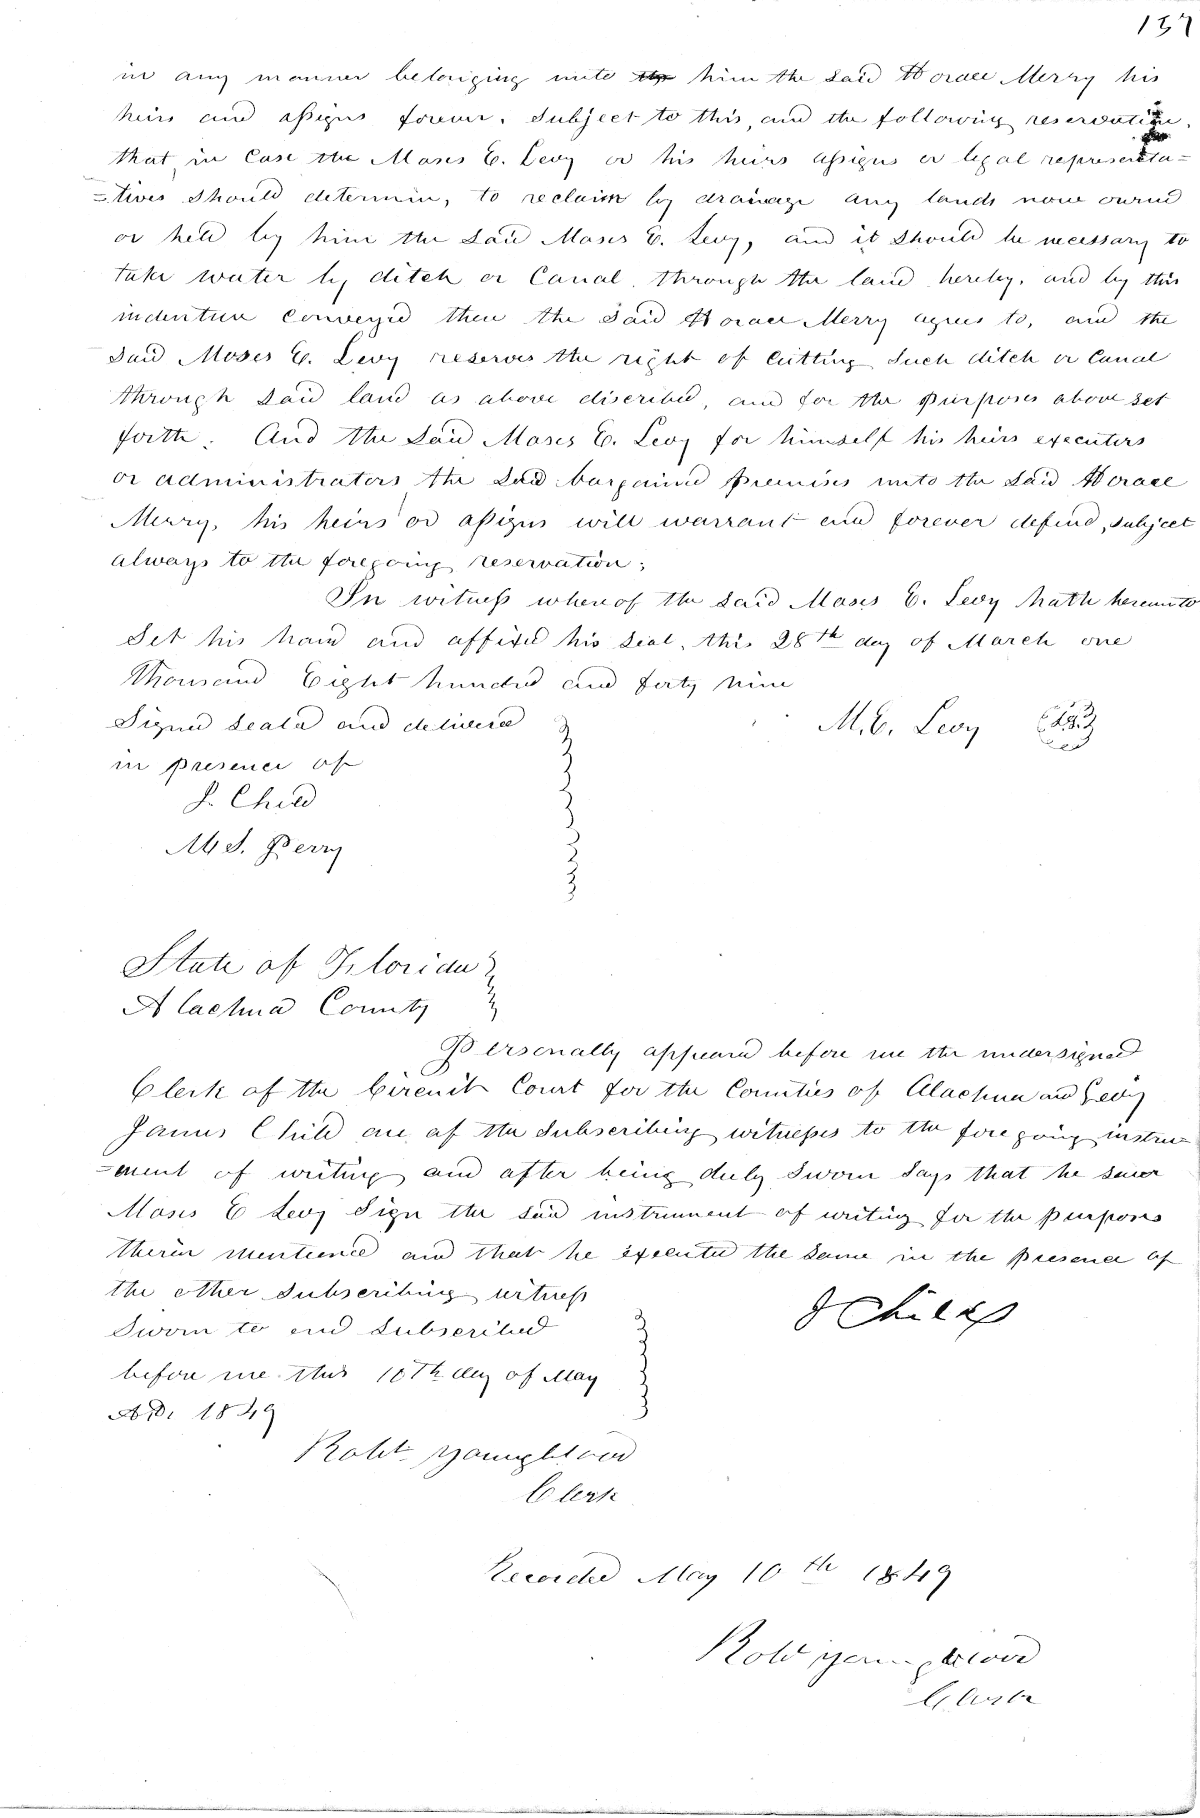 157
in any manner belonging unto him the said Horace Merry his
heirs and assigns forever. Subject to this, and the following reservation,
that, in case the Moses E. Levy or his heirs assigns or legal representa=
=tives should determin, to reclaim by drainage any lands now owned
or held by him the said Moses E. Levy, and it should be necessary to
take water by ditch or Canal through the land hereby, and by this
indenture conveyed then the said Horace Merry agrees to, and the
said Moses E. Levy reserves the right of cutting such ditch or Canal
through said land as above discribed, and for the purposes above set
forth. And the said Moses E. Levy for himself his heirs executers
or administrators the said bargained premises unto the said Horace
Merry, his heirs or assigns will warrant and forever defend, subject
always to the foregoing reservation;
In witness whereof the said Moses E. Levy hath hereunto
set his hand and affixed his seal, this 28th day of March one
thousand Eight hundred and forty nine
Signed seald and delivered
M. E. Levy
in presence of
J. Child
M S. Perry
State of Florida
Alachua County
Personally appeared before me the undersigned
Clerk of the Circuit Court for the Counties of Alachua and Levy
James Child one of the subscribing witnesses to the foregoing instru=
=ment of writing and after being duly sworn says that he saw
Moses E Levy sign the said instrument of writing for the purposes
therin mentioned and that he executed the same in the presence of
the other subscribing witness
J Child
Sworn to and subscribed
before me this 10th day of May
A.D. 1849
Robt Youngblood
Clerk
Recorded May 10th 1849
Robt Youngblood
Clerk